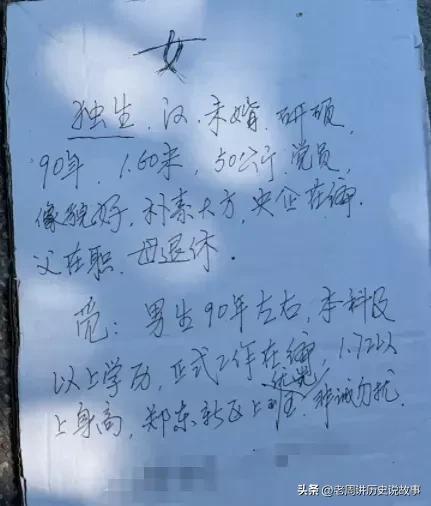 女
独生、汉、未婚、研硕、
90年、1.60米、50公斤、党员、
像貌好、朴素大方、央企在编、
父在职、母退休。
男生90年左右,本科及
以上学历,正式工作在编,1.72以
上身高,郑东新区上班,非诚勿扰.
头条 @老周讲历史说故事